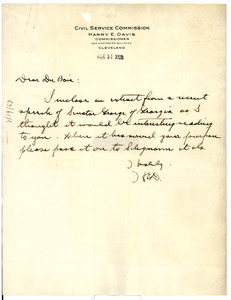 CIVIL SERVICE COMMISSION
HARRY E. DAVIS
COMMISSIONER
CLEVELAND
AUG 31 1928
Dear Du Bois:
I enclose an extract from a recent
speech of Senator George of Georgia as I
thought it would be interesting reading
to you. When it has served your purpose
please pass it on to
Hastily
HED.